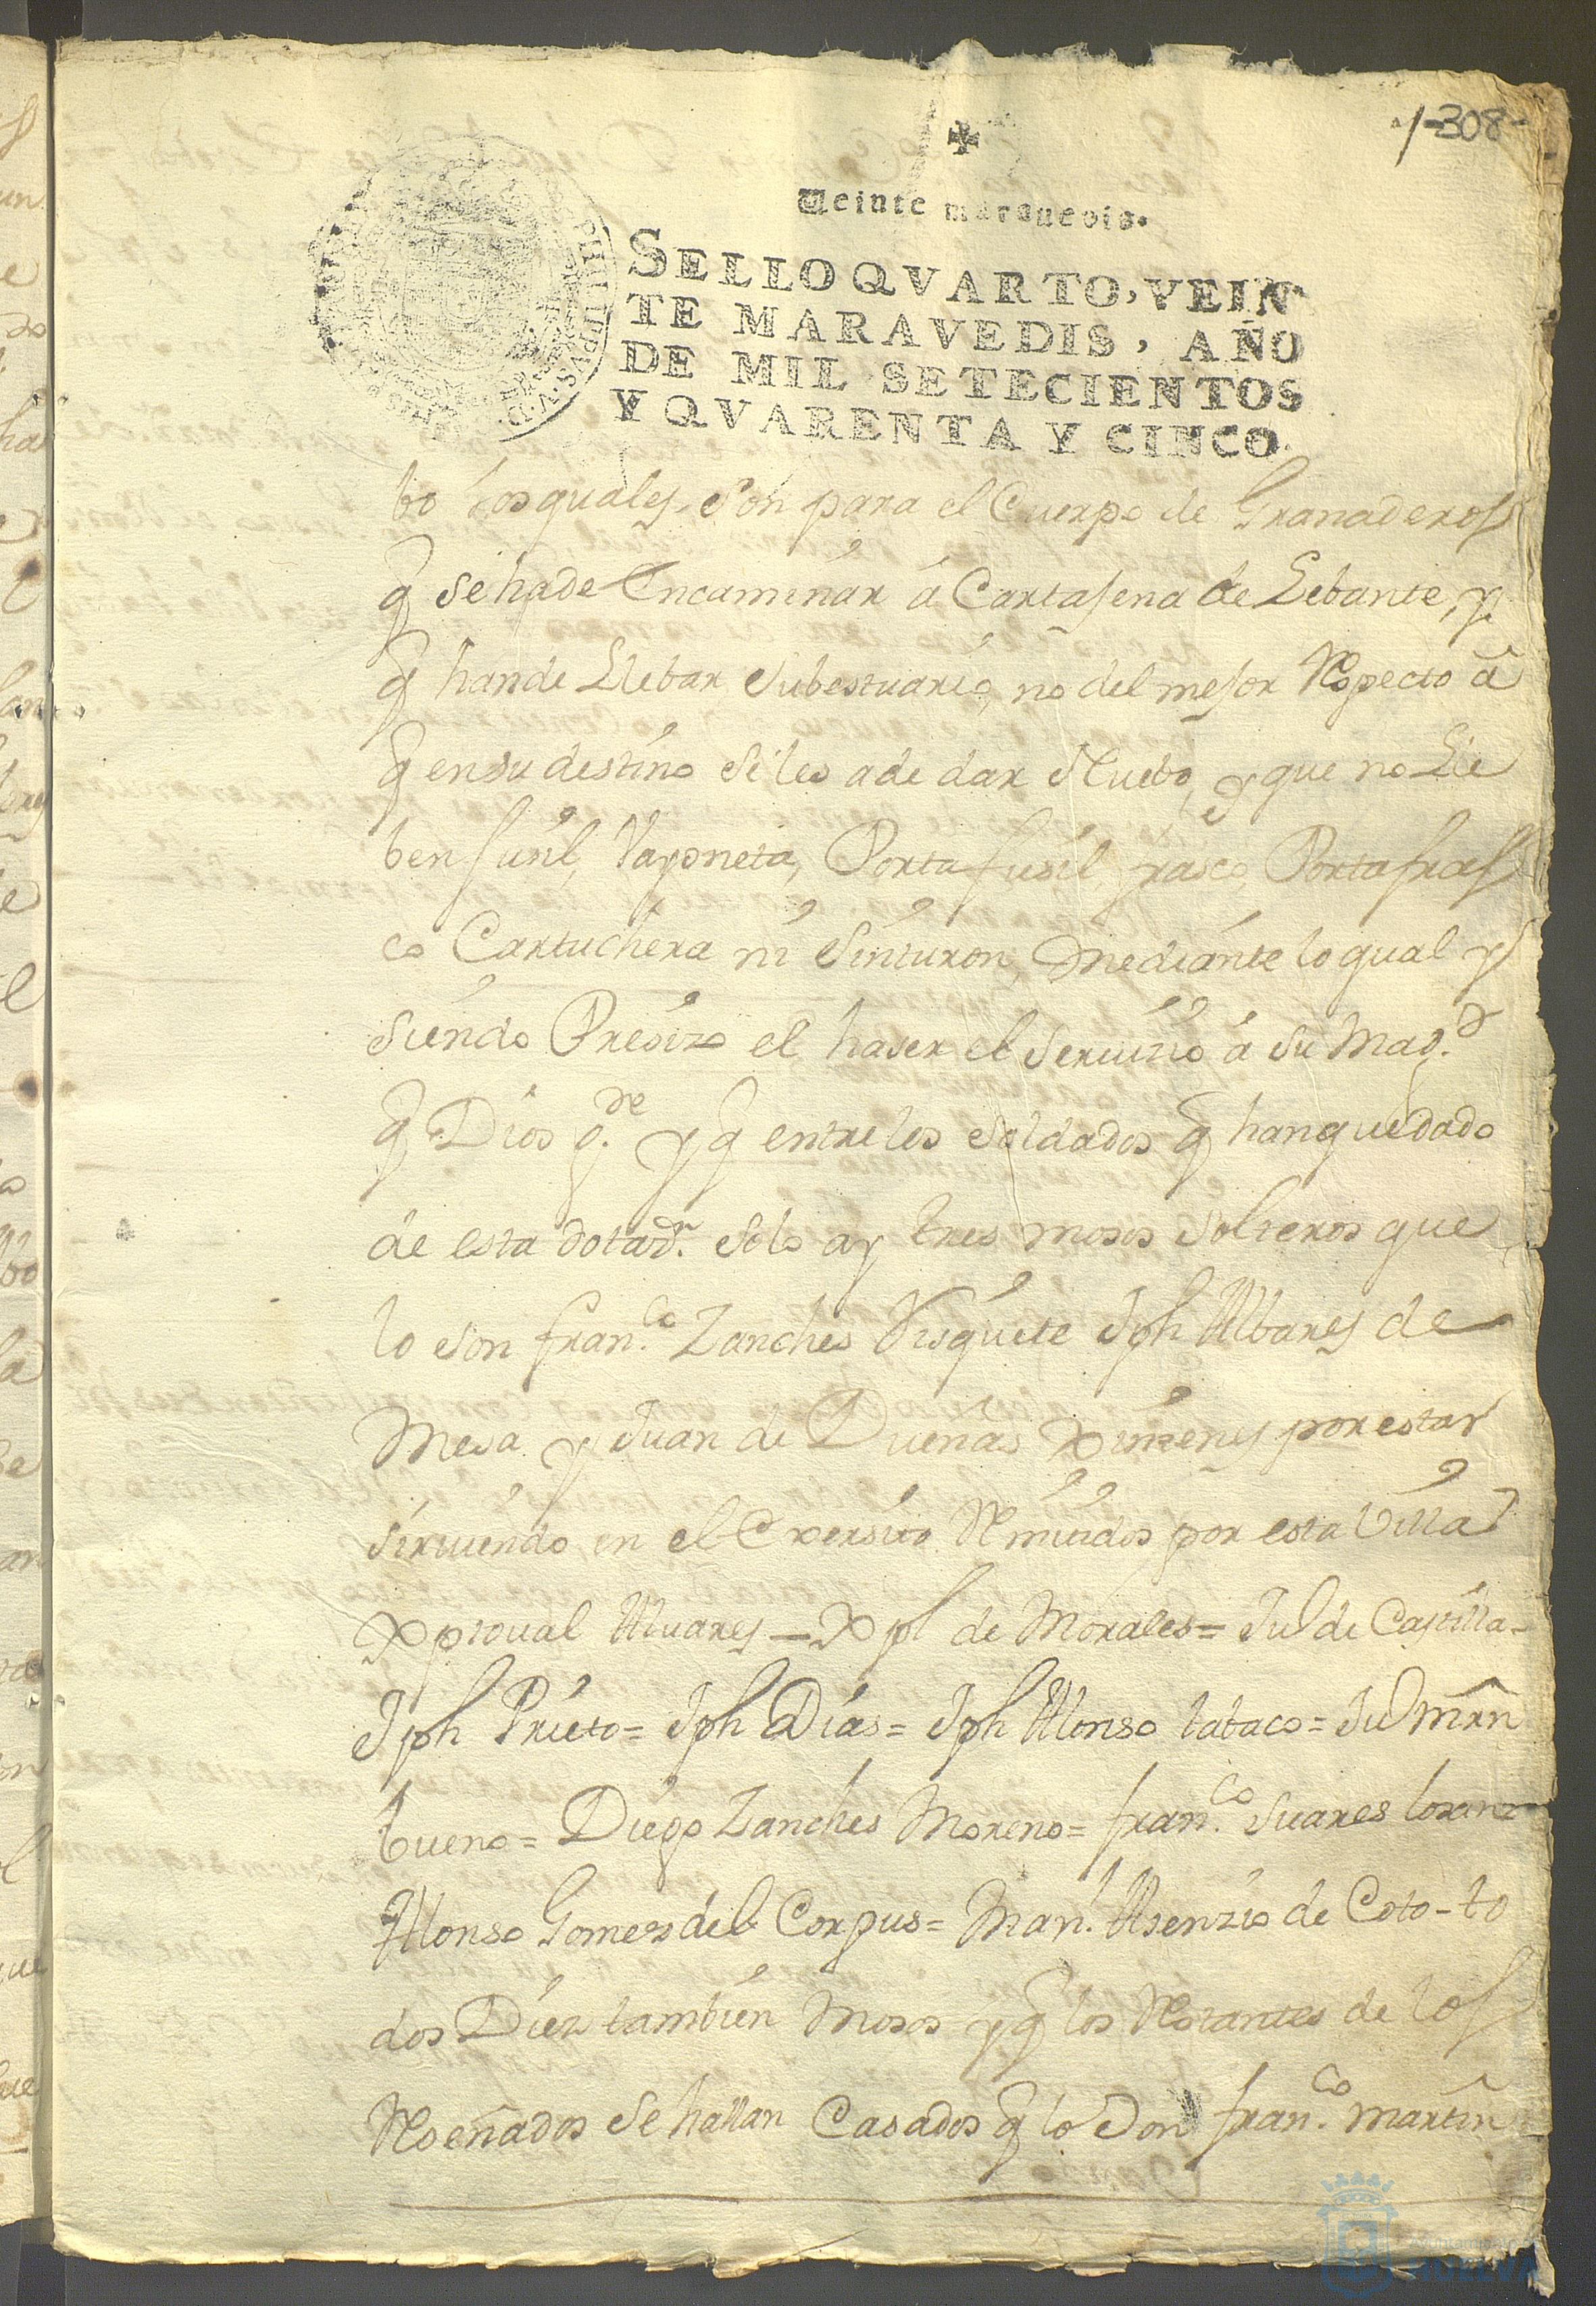 1-308-
Veinte maravedis.
SELLO QVARTO, VEIN
TE MARAVEDIS, AÑO
DE MIL SETECIENTOS
Y QVARENTA Y CINCO.
bo los quales son para el Cuerpo de Granaderos
q̃ se hade Encaminar á Cartajena de Lebante, y
q̃ hande Llebar subestuario, no del mejor Respecto â
q̃ ensu destino se les ade dar Nuebo, y que no Lle
ben fusil, Vayoneta, Porta fusil, frasco, Portafras
co Cartuchera ni Sinturon, Mediante lo qual y
Siendo Presizo el haser el Seruizio á Su Mag.d
q̃ Dios g.de y q̃ entre los Soldados q̃ hanquedado
de esta dotaz.n solo ay tres mosos Solteros que
lo son fran.co Zanches Visquete Jph Albares de
Mesa y Juan de Dueñas Ximenes por estar
siruiendo en el Exersito Remitidos por esta Villa
Xptoual Aluares - Xpl de Morales = Ju.o de Castilla -
Jph Prieto = Jph Dias = Jph Alonso tabaco = Ju.o Mrn̂
bueno = Diego Zanches Moreno = fran.co Suares
Alonso Gomez del Corpus = Man.l Asenzio de Coto - to
dos Diez tambien Mosos y q̃ los Restantes de los
Reseñados se hallan Casados q̃ lo son fran.co Martin
Ayuntamiento
HUELVA